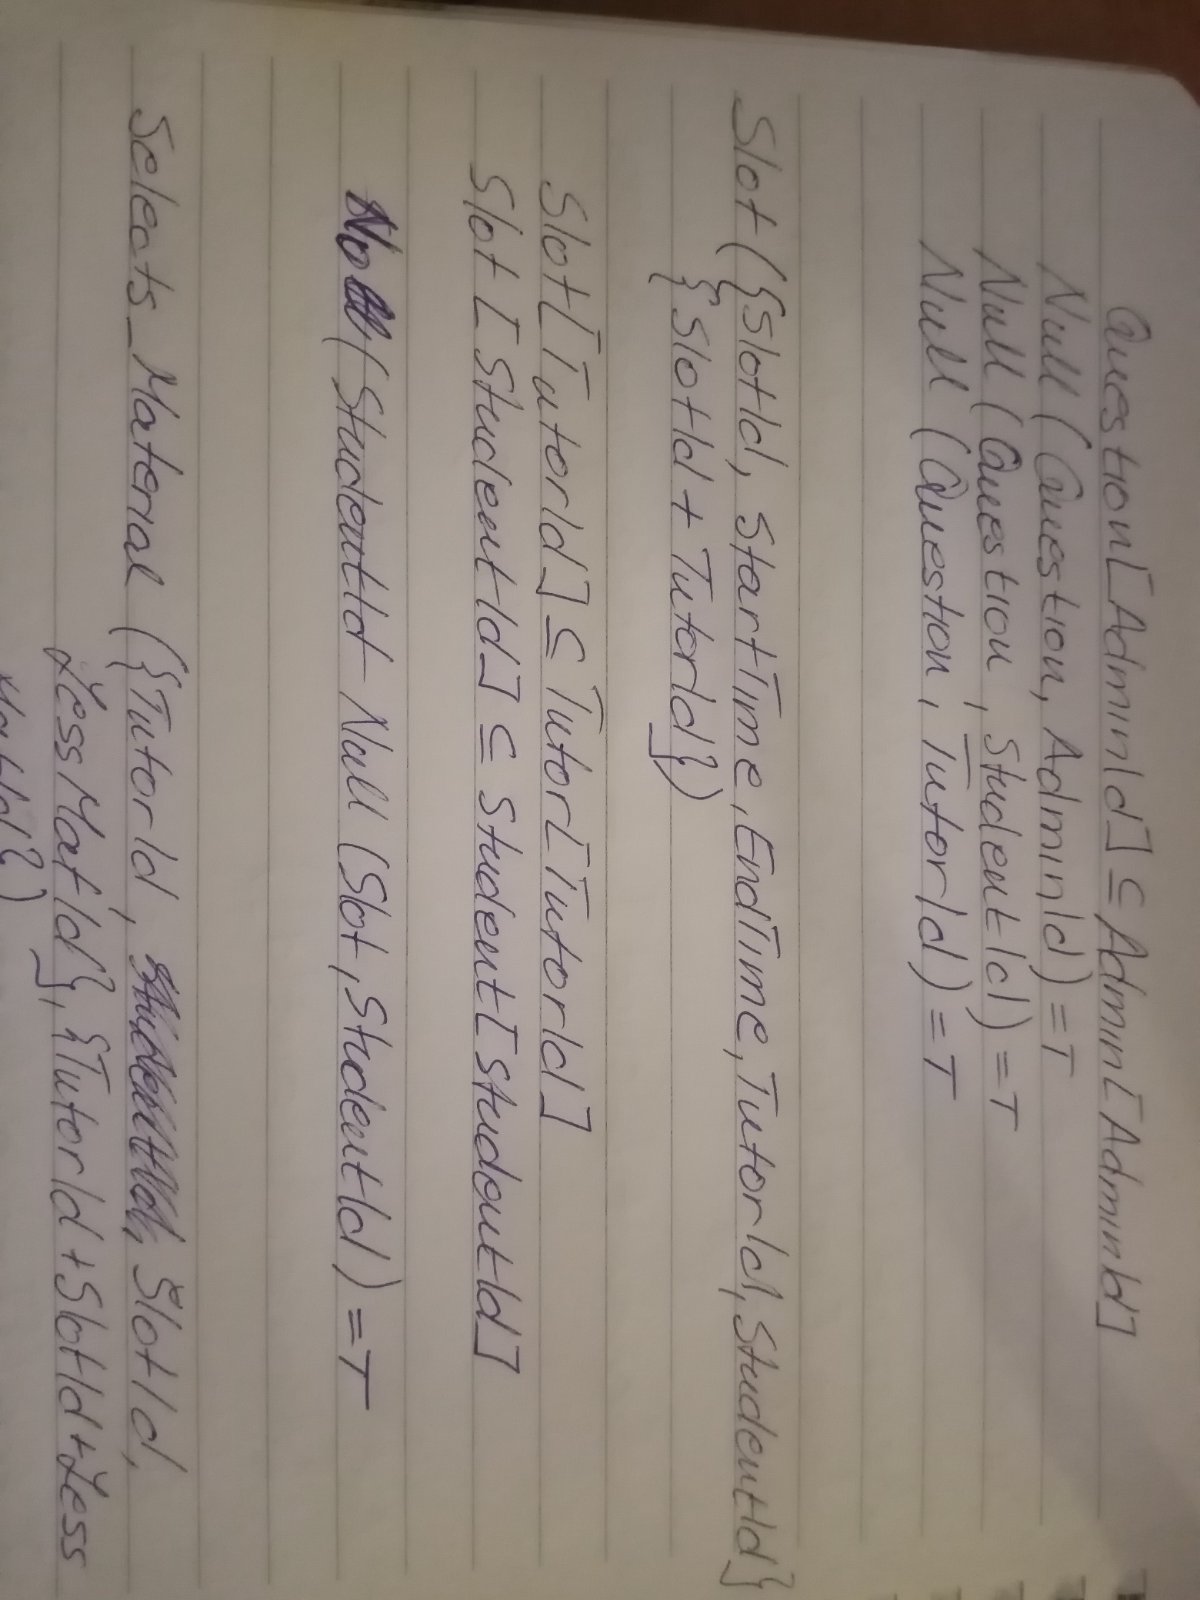 Question[AdminId] ⊆ Admin[AdminId]
Null (Question, AdminId) = T
Null (Question, StudentId) = T
Null (Question, TutorId) = T
Slot ({SlotId, StartTime, EndTime, TutorId, StudentId}
{SlotId + TutorId})
Slot[TutorId] ⊆ Tutor[TutorId]
Slot [StudentId] ⊆ Student[StudentId]
(StudentId Null (Slot, StudentId) = T
Selects_Material ({TutorId, SlotId,
LessMatId}, {TutorId + SlotId + Less
MatId})